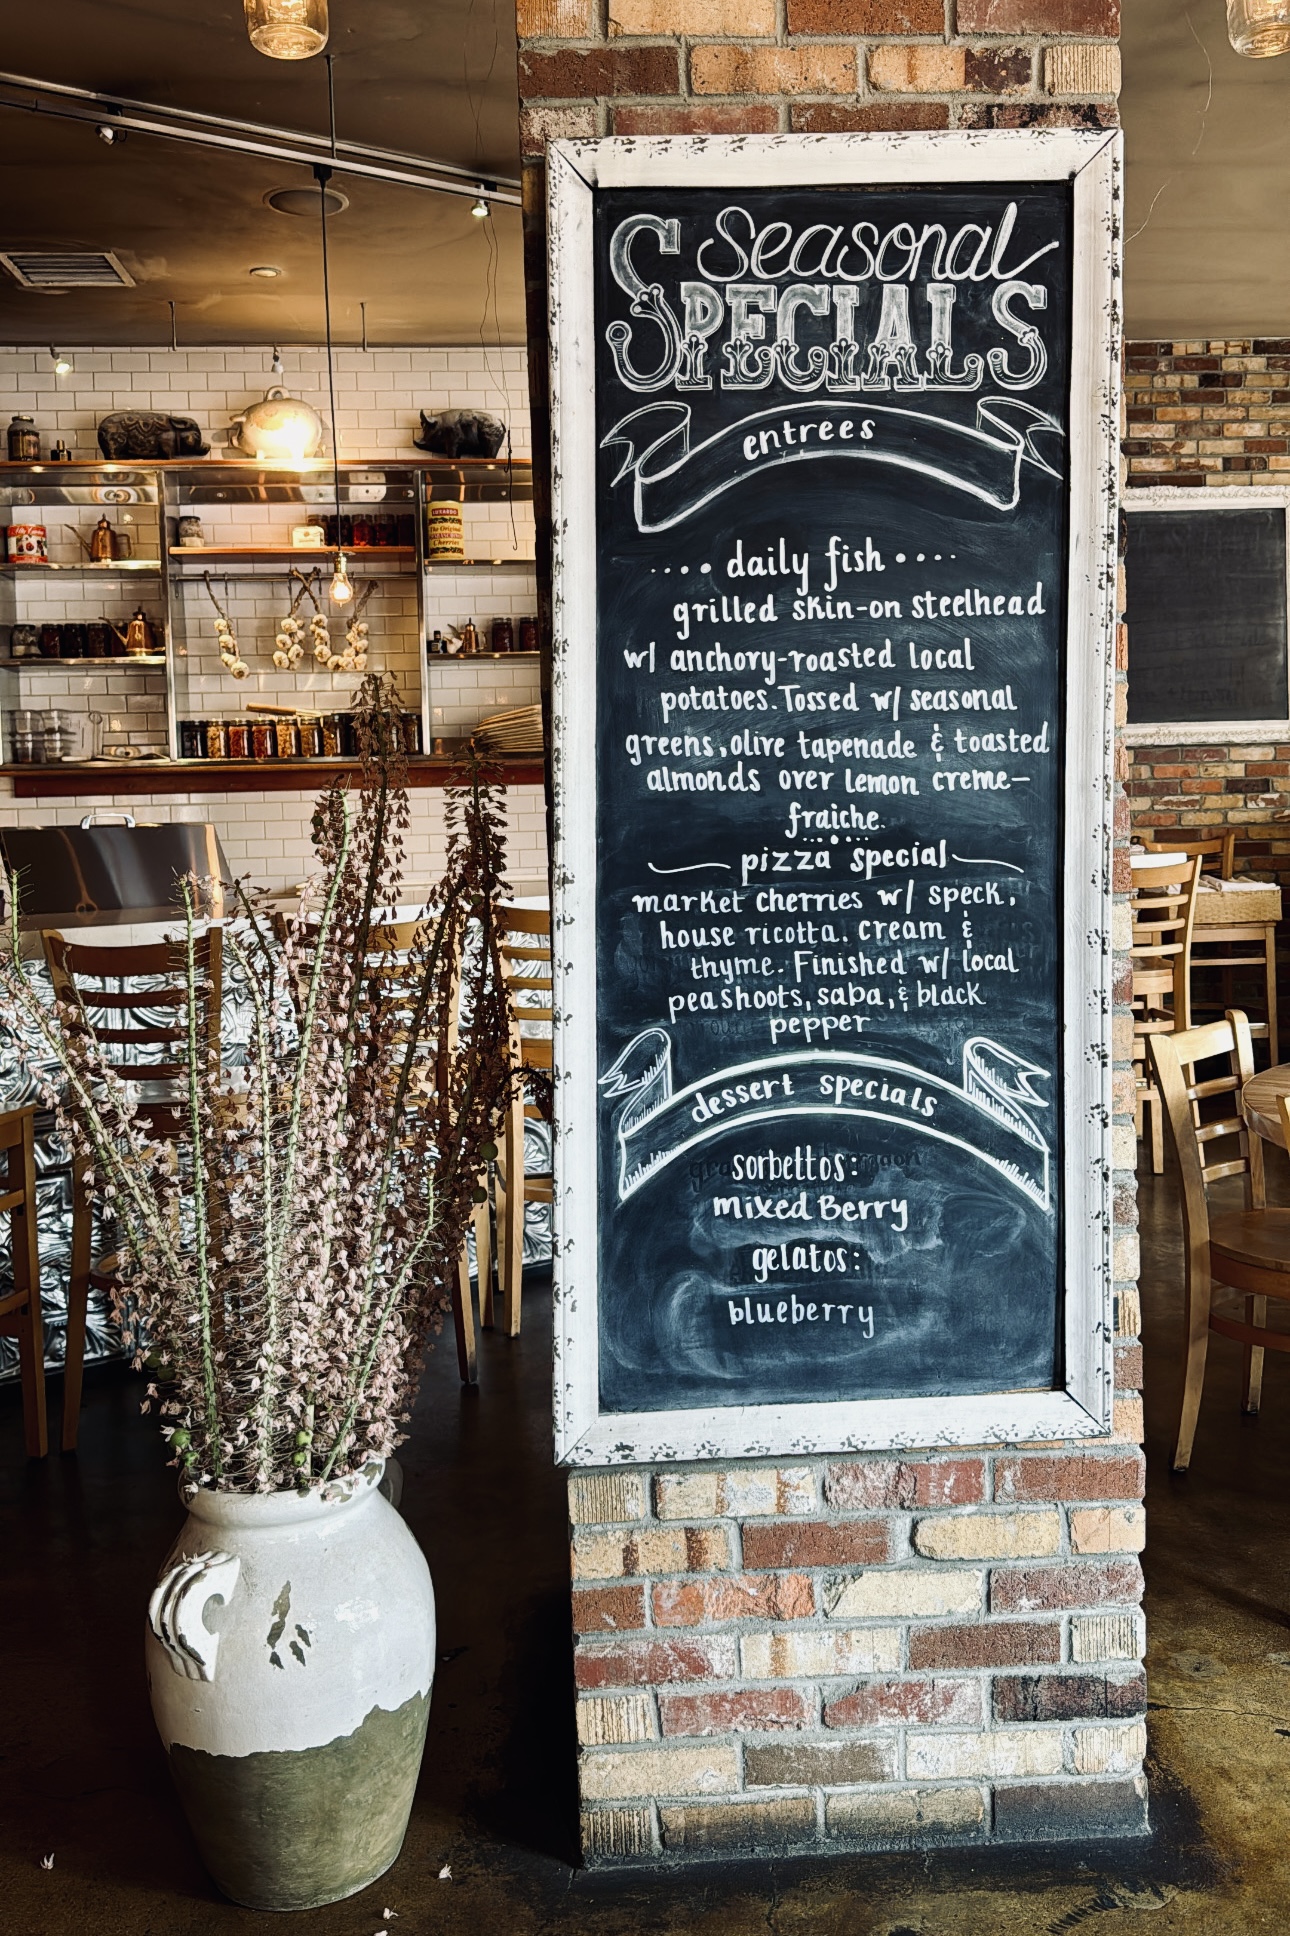 Seasonal
SPECIALS
entrees
.... daily fish ....
grilled skin-on steelhead
w/ anchory-roasted local
potatoes. Tossed w/ seasonal
greens, olive tapenade & toasted
almonds over lemon creme-
fraiche.
pizza special
market cherries w/ speck,
house ricotta. cream &
thyme. Finished w/ local
peashoots, saba, & black
pepper
dessert specials
sorbettos:
mixed Berry
gelatos:
blueberry
LUXARDO
The Original
Cherries